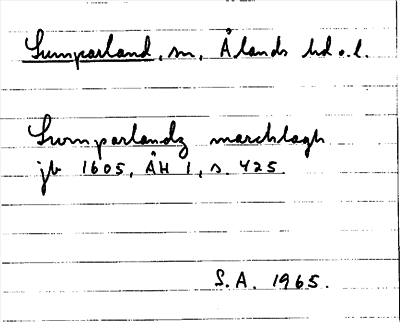 Sumparland, sn, Ålands hd o.l.
Swmparlandz marchlagh
jb 1605, ÅH 1, s. 425.
S.A. 1965.